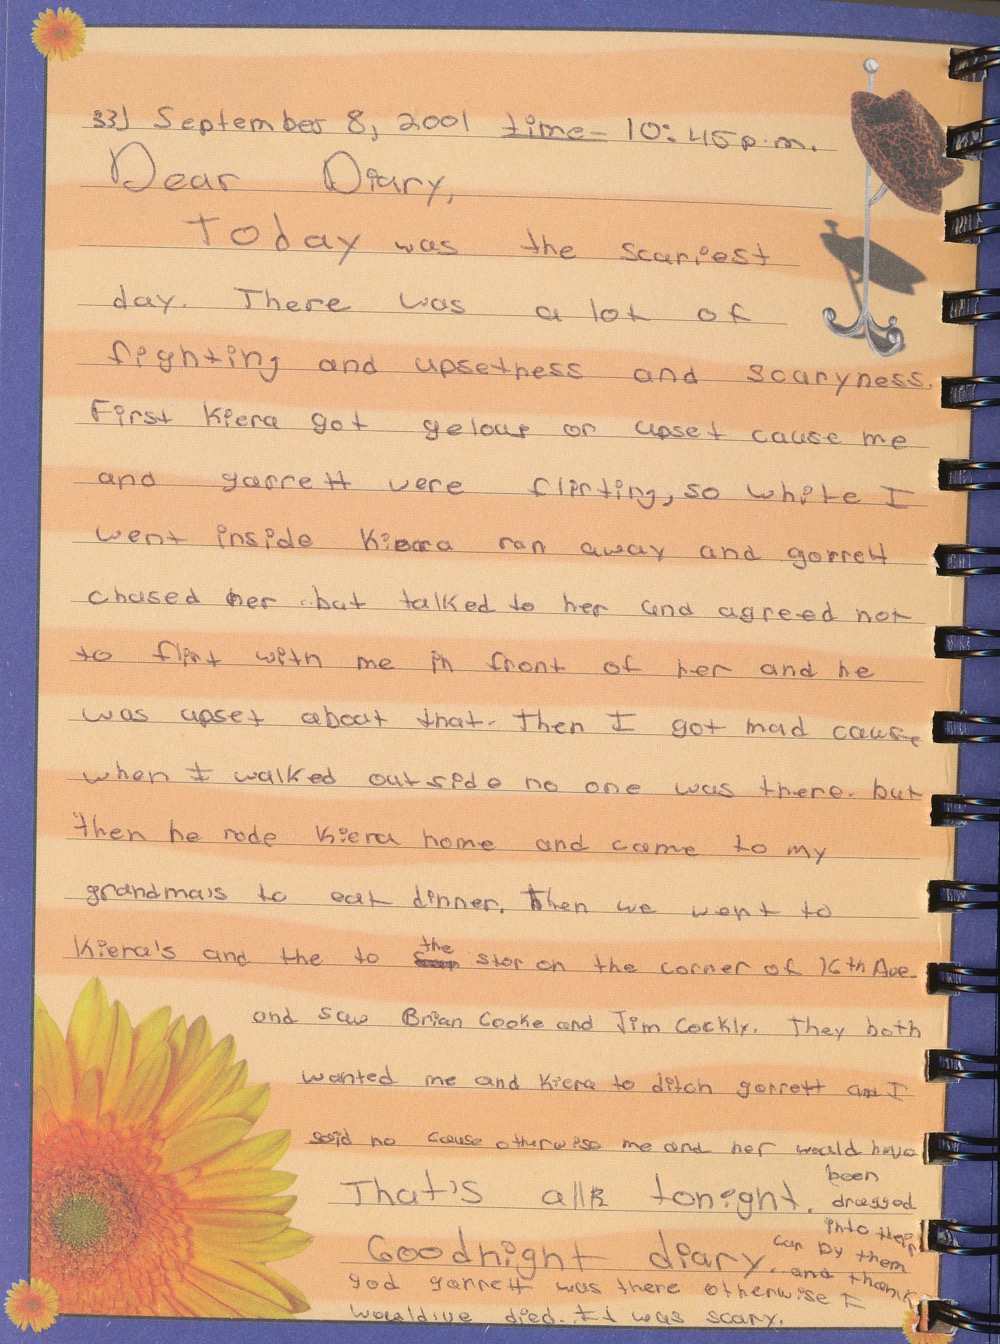 33) September 8, 2001 time- 10:45p.m.
Dear Diary,
Today was the scariest
day. There was a lot of
fighting and upsetness and scaryness.
First Kiera got gelous or upset cause me
and garrett were flirting, so while I
went inside Kiera ran away and garrett
chased her but talked to her and agreed not
to flirt with me in front of her and he
was upset about that. Then I got mad cause
when I walked outside no one was there. but
then he rode Kiera home and came to my
grandma's to eat dinner. Then we went to
Kiera's and the to the stor on the corner of 16th Ave.
and saw Brian Cooke and Jim Cockly. They both
wanted me and Kiera to ditch garrett and I
said no cause otherwise me and her would have
been
dragged
into their
car by them
and thank
god garrett was there otherwise I
would've died. It was scary.
That's all tonight.
Goodnight diary.